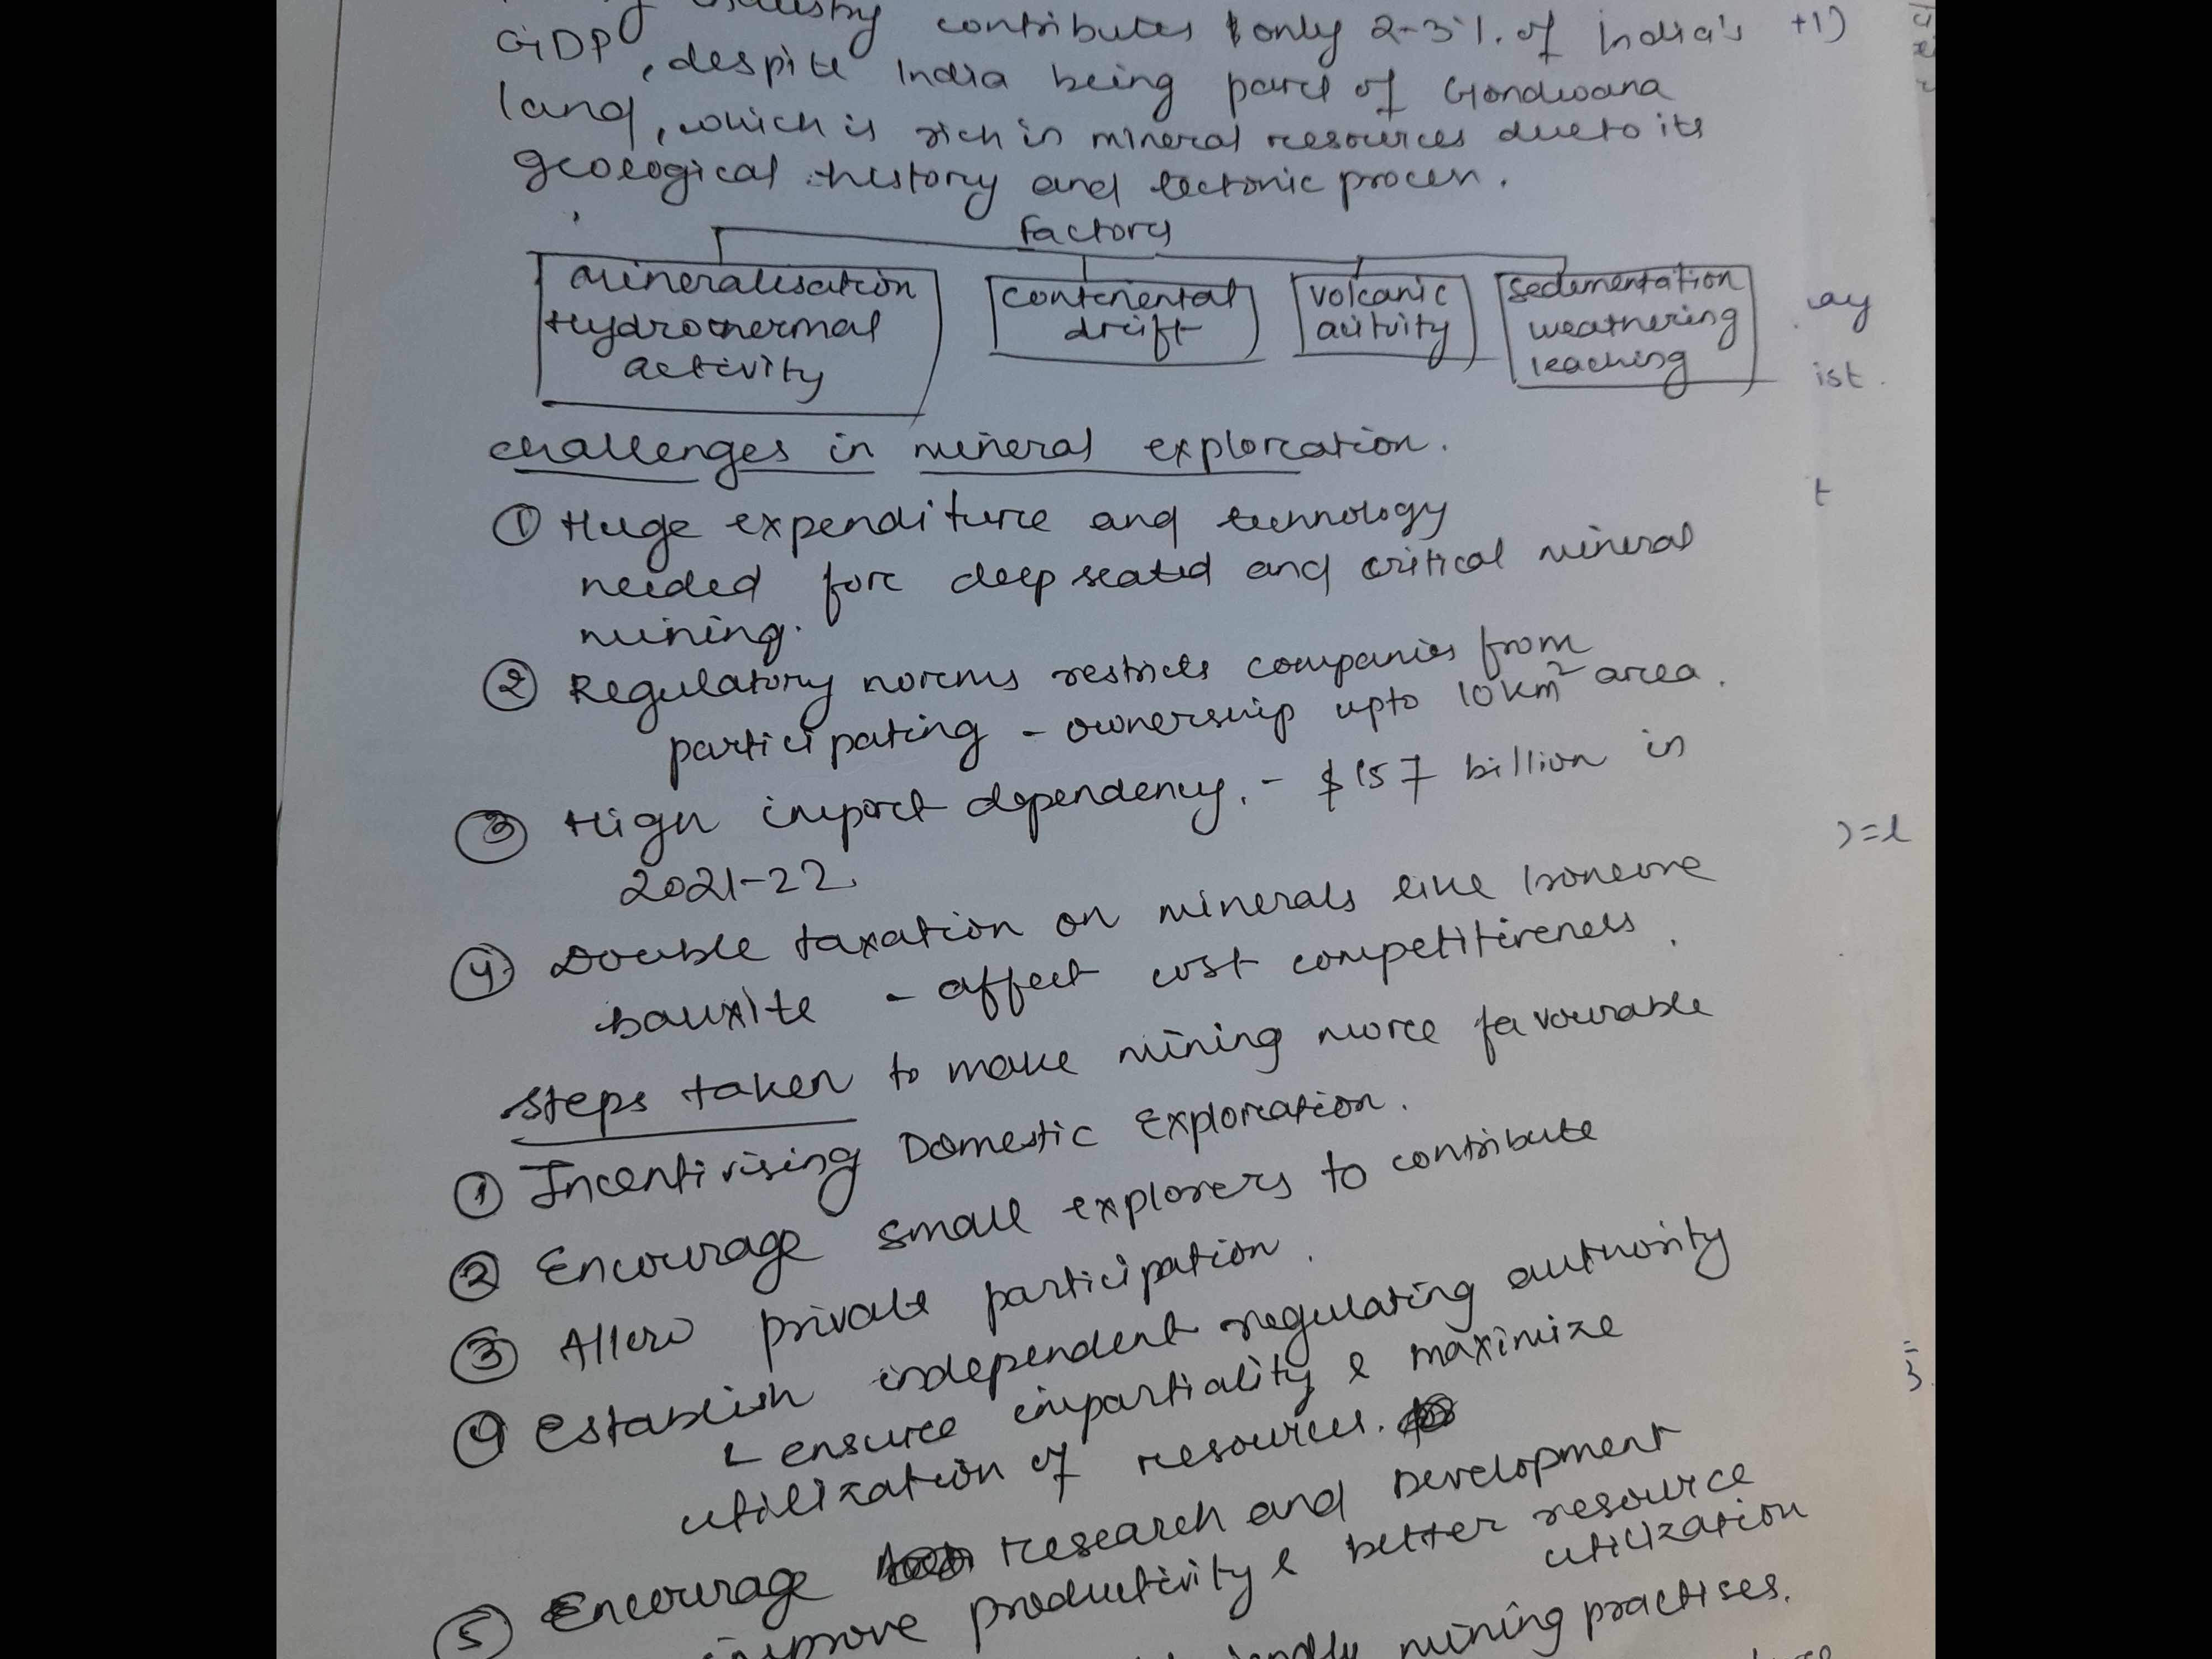 industry contributes only 2-3%. of India's
GDP, despite India being part of Gondwana
land, which is rich in mineral resources due to its
geological history and tectonic process.
Factors
Mineralisation
Hydrothermal
activity
continental
drift
volcanic
activity
sedimentation
weathering
leaching
challenges in mineral exploration.
① Huge expenditure and technology
needed for deep seated and critical mineral
mining.
② Regulatory norms restricts companies from
participating - ownership upto 10 km² area.
③ High import dependency. - $157 billion in
2021-22.
④ Double taxation on minerals like Iron ore
bauxite - affect cost competitiveness.
Steps taken to make mining more favourable
① Incentivising Domestic Exploration.
② Encourage small explorers to contribute
③ Allow private participation.
④ Establish independent regulating authority
ensure impartiality & maximize
utilization of resources.
⑤ Encourage research and Development
improve productivity & better resource
utilization
mining practises.
+1)
ay
ist.
t
)=l